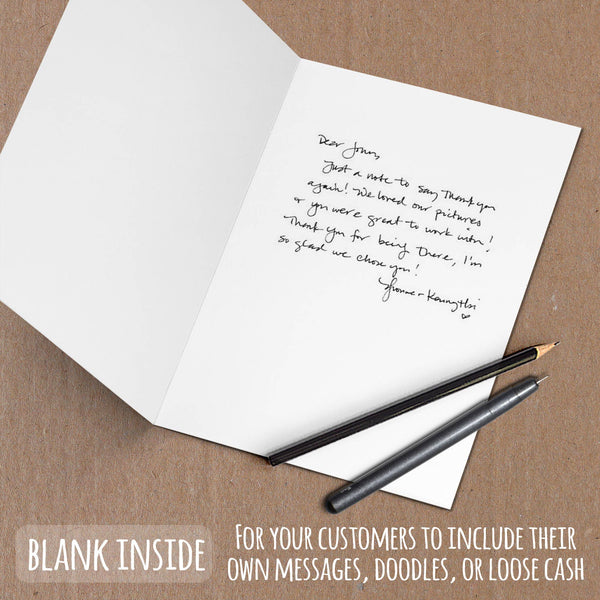 Dear
Just a note to say Thank you
again! We loved our pictures
& you were great to work with!
Thank you for being There, I'm
so glad we chose you!
BLANK INSIDE
FOR YOUR CUSTOMERS TO INCLUDE THEIR
OWN MESSAGES, DOODLES, OR LOOSE CASH